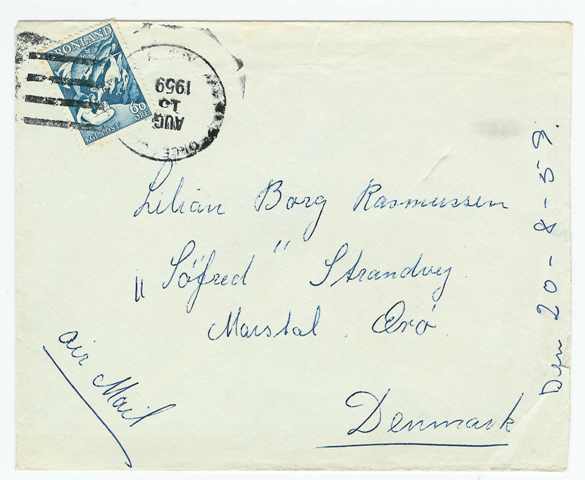 GRØNLAND
60
ØRE
AUG
13
1959
Lilian Borg Rasmussen
„Söfred" Strandvej
Marstal. Örö.
Denmark
air Mail
Den 20-8-59.